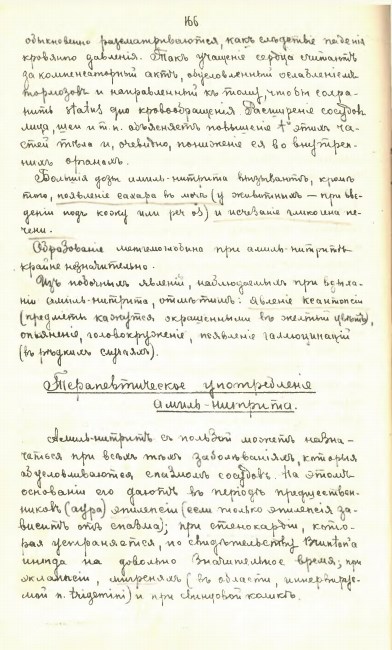 166
обыкновенно разсматриваются, какъ слѣдствіе паденія
кровяного давленія. Такъ учащеніе сердца считаютъ
за компенсаторный актъ, обусловленный ослабленіемъ
тормозовъ и направленный къ тому, чтобы сохра-
нить status quo кровообращенія. Расширеніе сосудовъ
лица, шеи и т.п. объясняетъ повышеніе t° этихъ ча-
стей тѣла и, очевидно, пониженіе ея во внутрен-
нихъ органахъ.
Большія дозы амиль-нитрита вызываютъ, кромѣ
того, появленіе сахара въ мочѣ (у животныхъ — при вве-
деніи подъ кожу или per os) и исчезаніе гликогена пе-
чени.
Образованіе метгемоглобина при амиль-нитритѣ
крайне незначительно.
Изъ побочныхъ явленій, наблюдаемыхъ при вдыха-
ніи амиль-нитрита, отмѣтимъ: явленіе ксантопсіи
(предметы кажутся окрашенными въ желтый цвѣтъ),
опьяненіе, головокруженіе, появленіе галлюцинацій
(въ рѣдкихъ случаяхъ).
Терапевтическое употребленіе
амиль-нитрита.
Амиль-нитритъ съ пользой можетъ назна-
чаться при всѣхъ тѣхъ заболѣваніяхъ, которыя
обусловливаются спазмомъ сосудовъ. На этомъ
основаніи его даютъ въ періодѣ предшественн-
никовъ (аура) эпилепсіи (если только эпилепсія за-
виситъ отъ спазма); при стенокардіи, кото-
рая устраняется, по свидѣтельству Brunton'а
иногда на довольно значительное время; при
экламpсіи, мигреняхъ (въ области, иннервируе-
мой n. trigemini) и при свинцовой коликѣ.